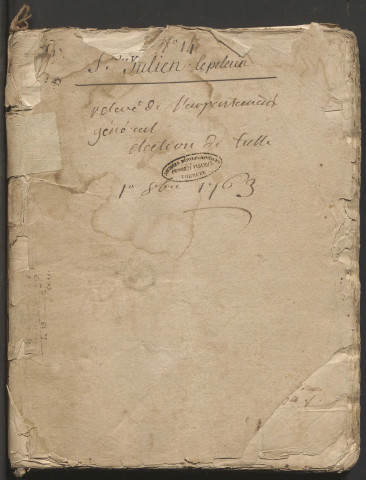 N° 14
St Julien - lepelerin
relevé de l'arpentement
général
élection de tulle
1er 8bre 1763